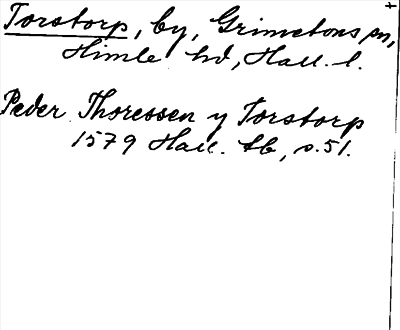 Torstorp, by, Grimetons sn,
Himle hd, Hall. l.
Peder Thoressen y Torstorp
1579 Hall. tb, s. 51.